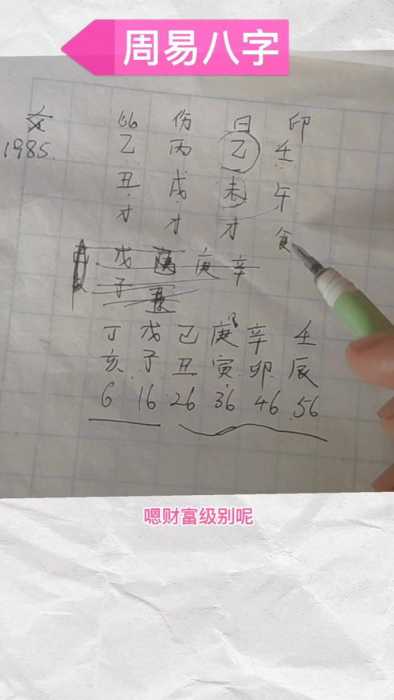 周易八字
比 伤 日 印
1985. 乙 丙 乙 壬
丑 戌 未 午
才 才 才 食
戊 庚 辛
子
丁 戊 己 庚 辛 壬
亥 子 丑 寅 卯 辰
6 16 26 36 46 56
嗯财富级别呢